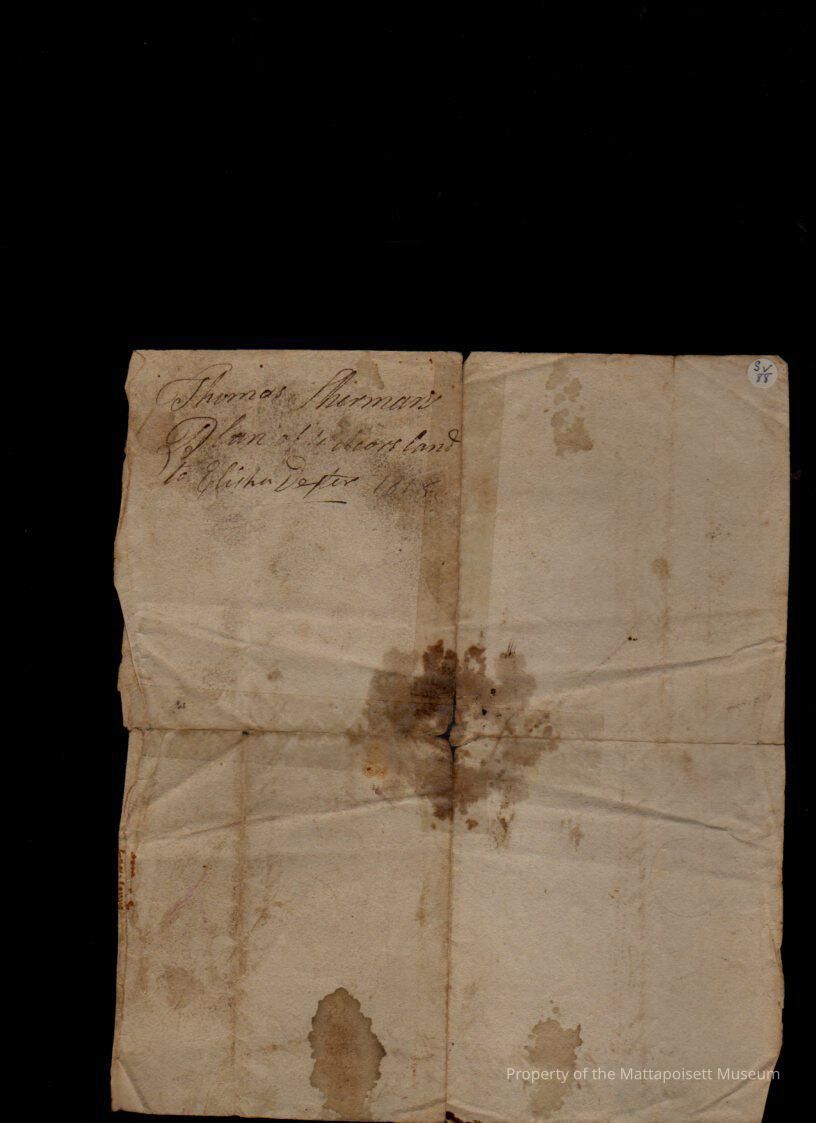 Thomas Sherman's
Plan of land
to Elisha Dexter
SV
88
Property of the Mattapoisett Museum